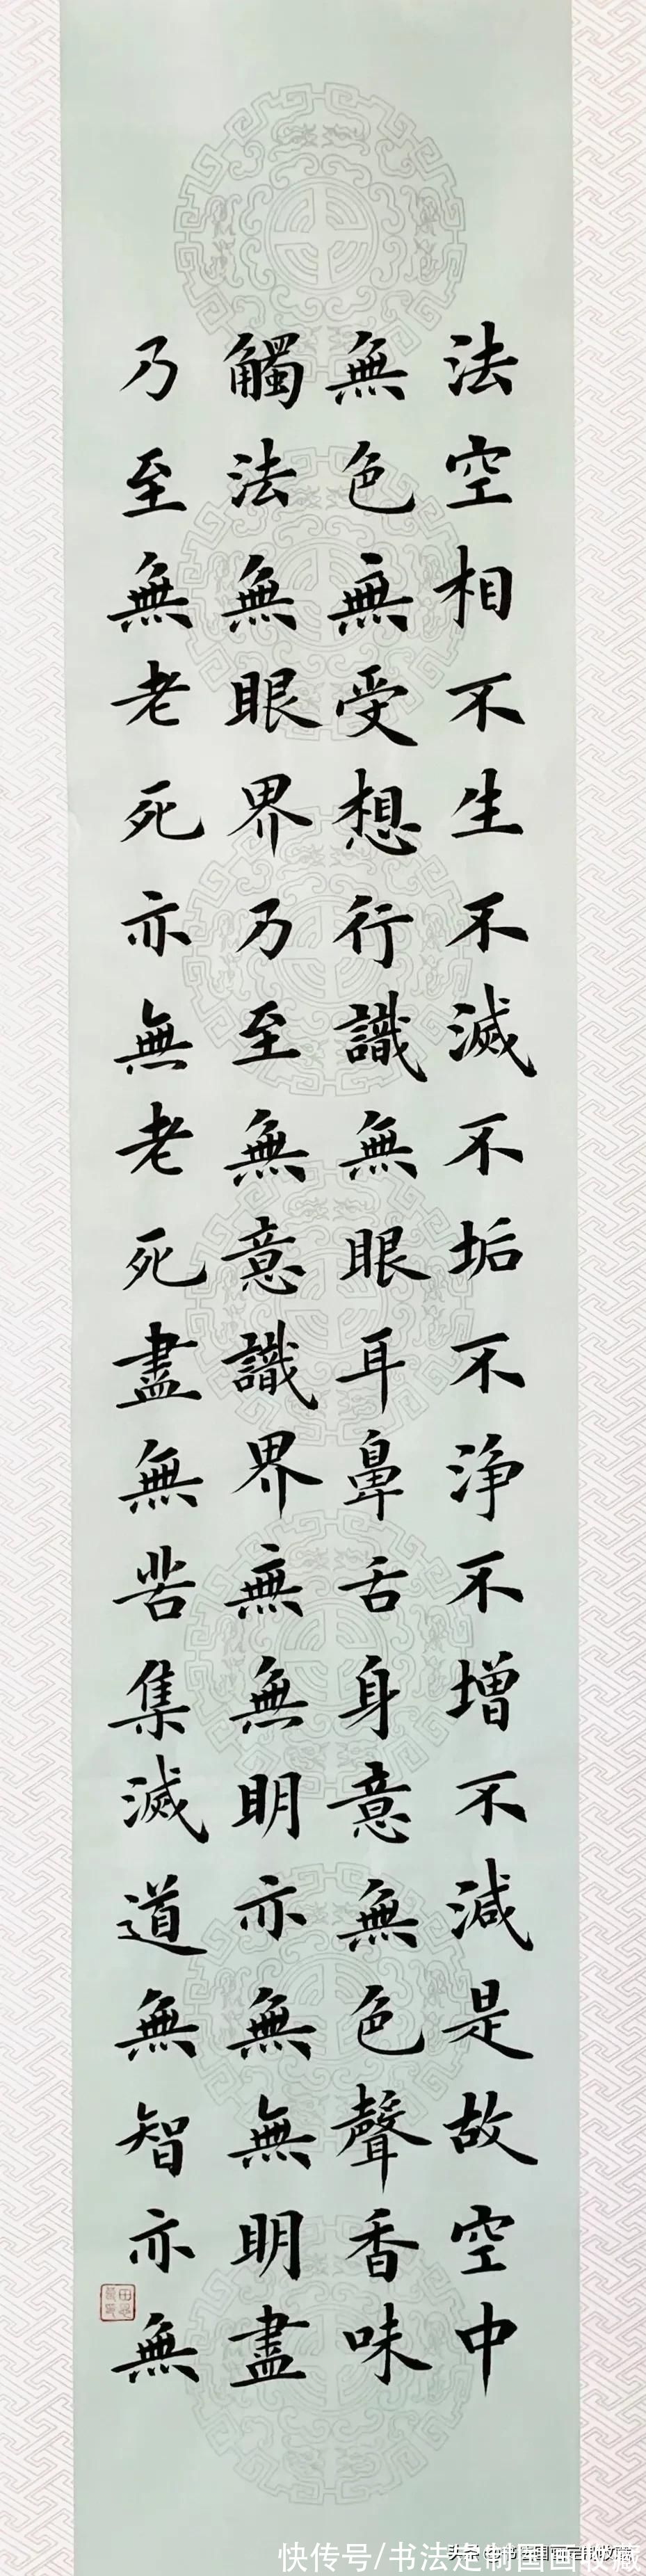 法空相不生不滅不垢不淨不增不減是故空中
無色無受想行識無眼耳鼻舌身意無色聲香味
觸法無眼界乃至無意識界無無明亦無無明盡
乃至無老死亦無老死盡無苦集滅道無智亦無
快传号/书法定制国画收藏